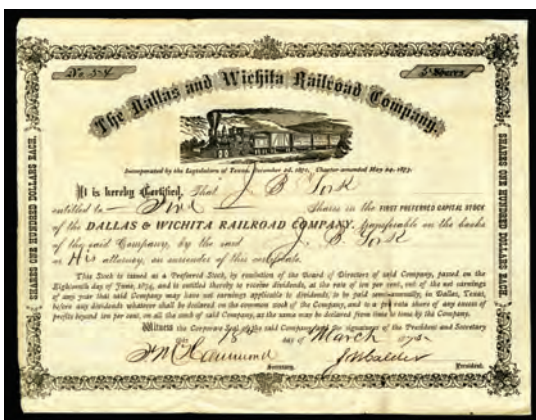 No 54
5 Shares
The Dallas and Wichita Railroad Company.
Incorporated by the Legislature of Texas, December 2d, 1871, Charter amended May 24, 1873.
It is hereby Certified, That J B York
entitled to Five Shares in the FIRST PREFERRED CAPITAL STOCK
of the DALLAS & WICHITA RAILROAD COMPANY, transferable on the books
of the said Company, by the said J. B. York
or His attorney, on surrender of this certificate.
This Stock is issued as a Preferred Stock, by resolution of the Board of Directors of said Company, passed on the
Eighteenth day of June, 1874, and is entitled thereby to receive dividends, at the rate of ten per cent, out of the net earnings
of any year that said Company may have net earnings applicable to dividends, to be paid semi-annually, in Dallas, Texas,
before any dividends whatever shall be declared on the common stock of the Company, and to a pro rata share of any excess of
profits beyond ten per cent, on all the stock of said Company, as the same may be declared from time to time by the Company.
Witness the Corporate Seal of the said Company and the signatures of the President and Secretary
this 18 day of March
Secretary.
President.
SHARES ONE HUNDRED DOLLARS EACH.
SHARES ONE HUNDRED DOLLARS EACH.